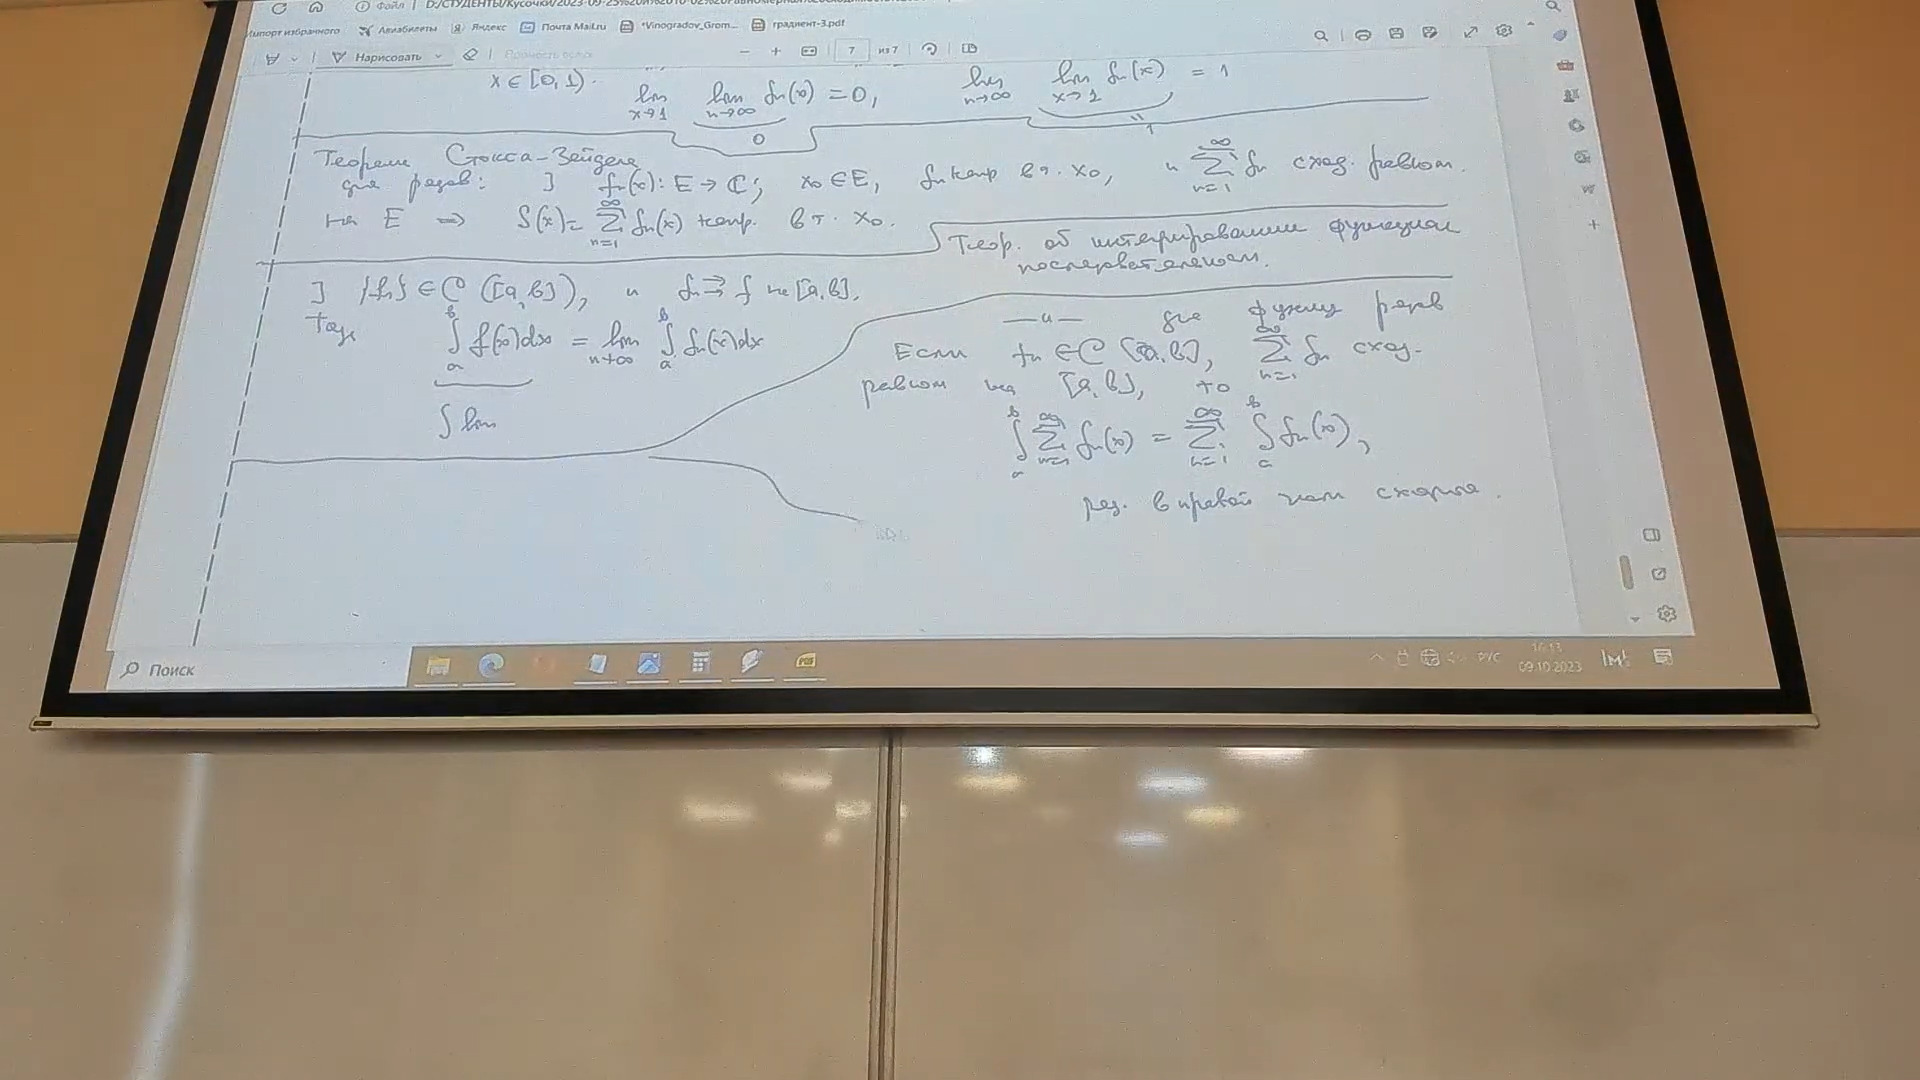 Файл D:/СТУДЕНТЫ/Кусочки/2023-09-25%20и%2010-02%20
Импорт избранного Авиабилеты Яндекс Почта Mail.ru *Vinogradov_Grom... градиент-3.pdf
Нарисовать 7 из 7
x ∈ [0, 1). lim x→1 lim n→∞ fn(x) = 0, lim n→∞ lim x→1 fn(x) = 1
0 1
Теорема Стокса-Зейделя
для рядов: ] fn(x): E → C, x0 ∈ E, fn непр в т. x0, и ∑ n=1 ∞ fn сход. равном.
на E ⇒ S(x) = ∑ n=1 ∞ fn(x) непр. в т. x0.
Теор. об интегрировании функцион
последовательности.
] {fn} ∈ C([a, b]), и fn ⇉ f на [a, b].
Тогда ∫ a b f(x)dx = lim n→∞ ∫ a b fn(x)dx
∫ lim
—"— для функц рядов
Если fn ∈ C [a, b], ∑ n=1 ∞ fn сход.
равном на [a, b], то
∫ a b ∑ n=1 ∞ fn(x) = ∑ n=1 ∞ ∫ a b fn(x),
ряд. в правой части сходится.
Поиск
РУС
16:13
09.10.2023